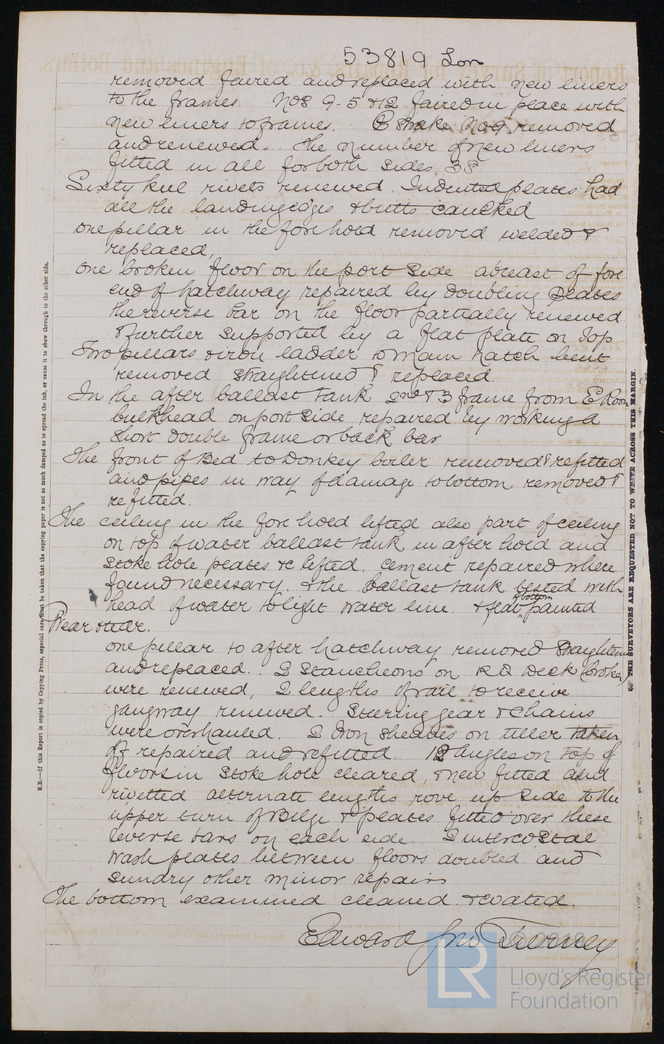 53819 Lon
removed faired and replaced with new liners
to the frames. Nos 9-5 & 12 faired in place with
new liners to frames. B Strake No 9 removed
and renewed. The number of new liners
fitted in all for both sides 38
Sixty keel rivets renewed. Indented plates had
all the landing edges & butts caulked
one pillar in the fore hold removed welded &
replaced.
one broken floor on the port side abreast of fore
end of hatchway repaired by doubling plates
the reverse bar on the floor partially renewed
& further supported by a flat plate on top
Two pillars & iron ladder to main hatch bent
removed straightened & replaced
In the after ballast tank 2nd & 3 frame from E Room
bulkhead on port side, repaired by working a
short double frame or back bar
The front of Bed to Donkey boiler removed & refitted
and pipes in way of damage to bottom removed &
refitted.
The ceiling in the fore hold lifted also part of ceiling
on top of water ballast tank in after hold and
stoke hole plates &c lifted cement repaired where
found necessary. & the ballast tank tested with
head of water to light water line. & flat bottom painted
Wear & tear.
one pillar to after hatchway removed straightened
and replaced. 2 Stancheons on R Q Deck broken
were renewed, 2 lengths of rail to receive
gangway renewed. Steering gear & chains
were overhauled. 2 Iron sheaves on tiller taken
off repaired and refitted. 12 angles on top of
floors in stoke hole cleared, & new fitted and
rivetted alternate lengths rove up side to the
upper turn of Bilge & plates fitted over these
reverse bars on each side. 2 intercostal
wash plates between floors doubled and
sundry other minor repairs
The bottom examined cleaned & coated.
Edward Jno Tierney
N.B.—If this Report is copied by Copying Press, especial care must be taken that the copying paper is not so much damped as to spread the ink, or cause it to show through to the other side.
THE SURVEYORS ARE REQUESTED NOT TO WRITE ACROSS THIS MARGIN.
LR
Lloyd's Register
Foundation